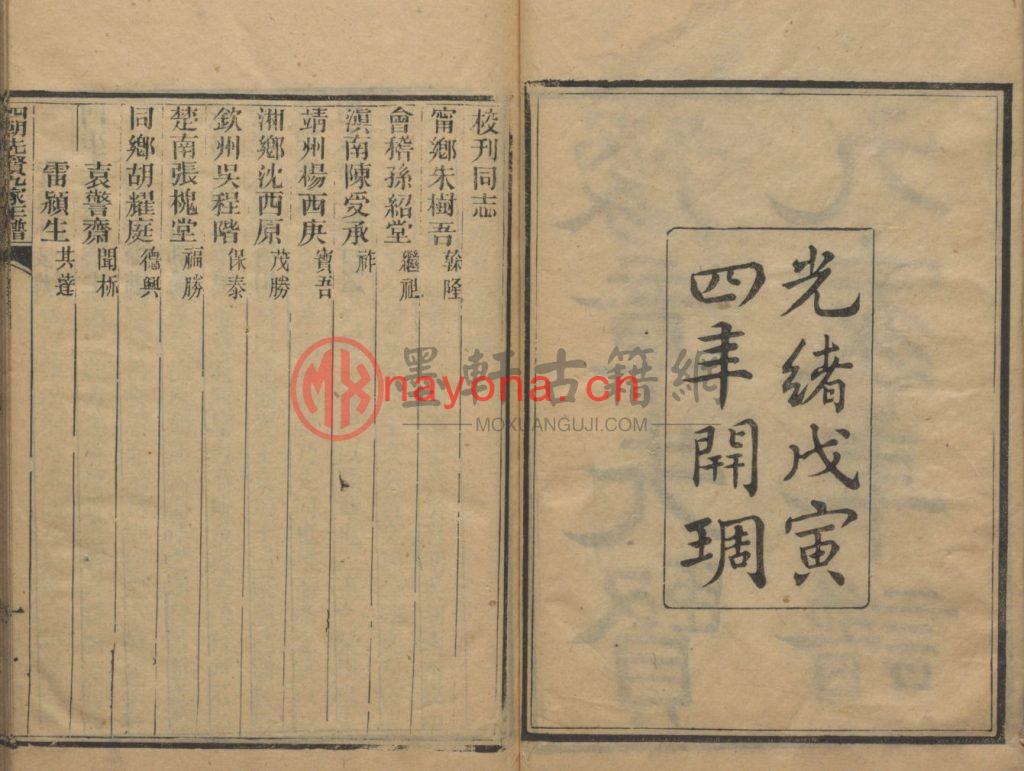 光緒戊寅
四年開琱
校刊同志
甯鄉朱樹吾 榦隆
會稽孫紹堂 繼祖
滇南陳受承 祚
靖州楊西庚 寶吾
湘鄉沈西原 茂勝
欽州吳程階 保泰
楚南張槐堂 福勝
同鄉胡耀庭 德興
袁警齋 聞柝
雷潁生 其達
四朝先賢六家年譜
一
墨軒古籍網
nayona.cn
MOXUANGUJI.COM
MX